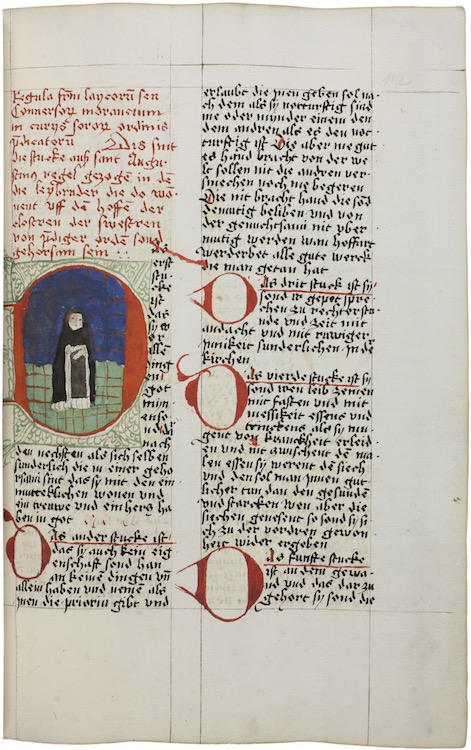 Regula frm laycorū seu
Conversorū morantium
in curijs soroꝝ ordinis
pdicatorū Dis sint
die stucke auß sant Augu-
stinus regel gezoge in dē
die leybrüder die do wō-
nent vff dē hoffen der
clostren der swestren
von pdiger ordē sond
gehorsam sein
Das
erst
stu-
cke
ist
das
sy vo
alle
ding
got
nach
den nechsten als sich selben
sunderlich die in einer geho
rsami sind das sy mit den ein
mutteklichen wonen vnd
ein treuwe vnd ein herß ha
ben in got
Das ander stucke ist
das sy auch kein eig
enschafft sond han
an keine dingen vn
allein haben vnd neme als
inen die priorin gibt vnd
erlaubt die inen geben sol na-
ch dem als sy notturftig sind
me oder minder einem den
dem andren als es den not-
turftig ist Die aber me gut
es hand bracht von der we
lt sollen nit die andren ver-
smechen noch me begeren
Die nit bracht hand die sond
demutig beliben vnd von
der gemeinsami nit vber-
mutig werden wan hoffart
verderbet alle gute werck
die man getan hat
Das drit stuck ist sy
sond ir gepet spre
chen zu rechter stu-
nde vnd zeit mit
andacht vnd mit ruwiger
innikeit sunderlichen in de
kirchen
Das vierde stucke ist sy
sond iren leib zemen
mit fasten vnd mit
messikeit essens vnd
trinckens als sy mü-
gent vor kranckheit erleid-
en vnd nit zwischent dē ma-
len essen sy werent dē siech
vnd den sol man innen gut-
licher tun dan den gesunde
vnd starcken wen aber die
siechen genesent so sond sy si
ch zu der vordren gewon
heit wider ergeben
Das funfte stucke
ist an dem gewa-
nd vnd das dar zu
gehort sy sond die